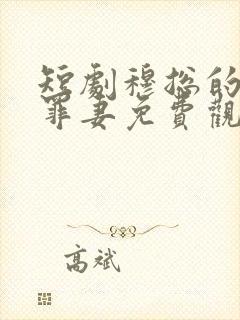 短劇穆總的
罪妻免費觀
高斌